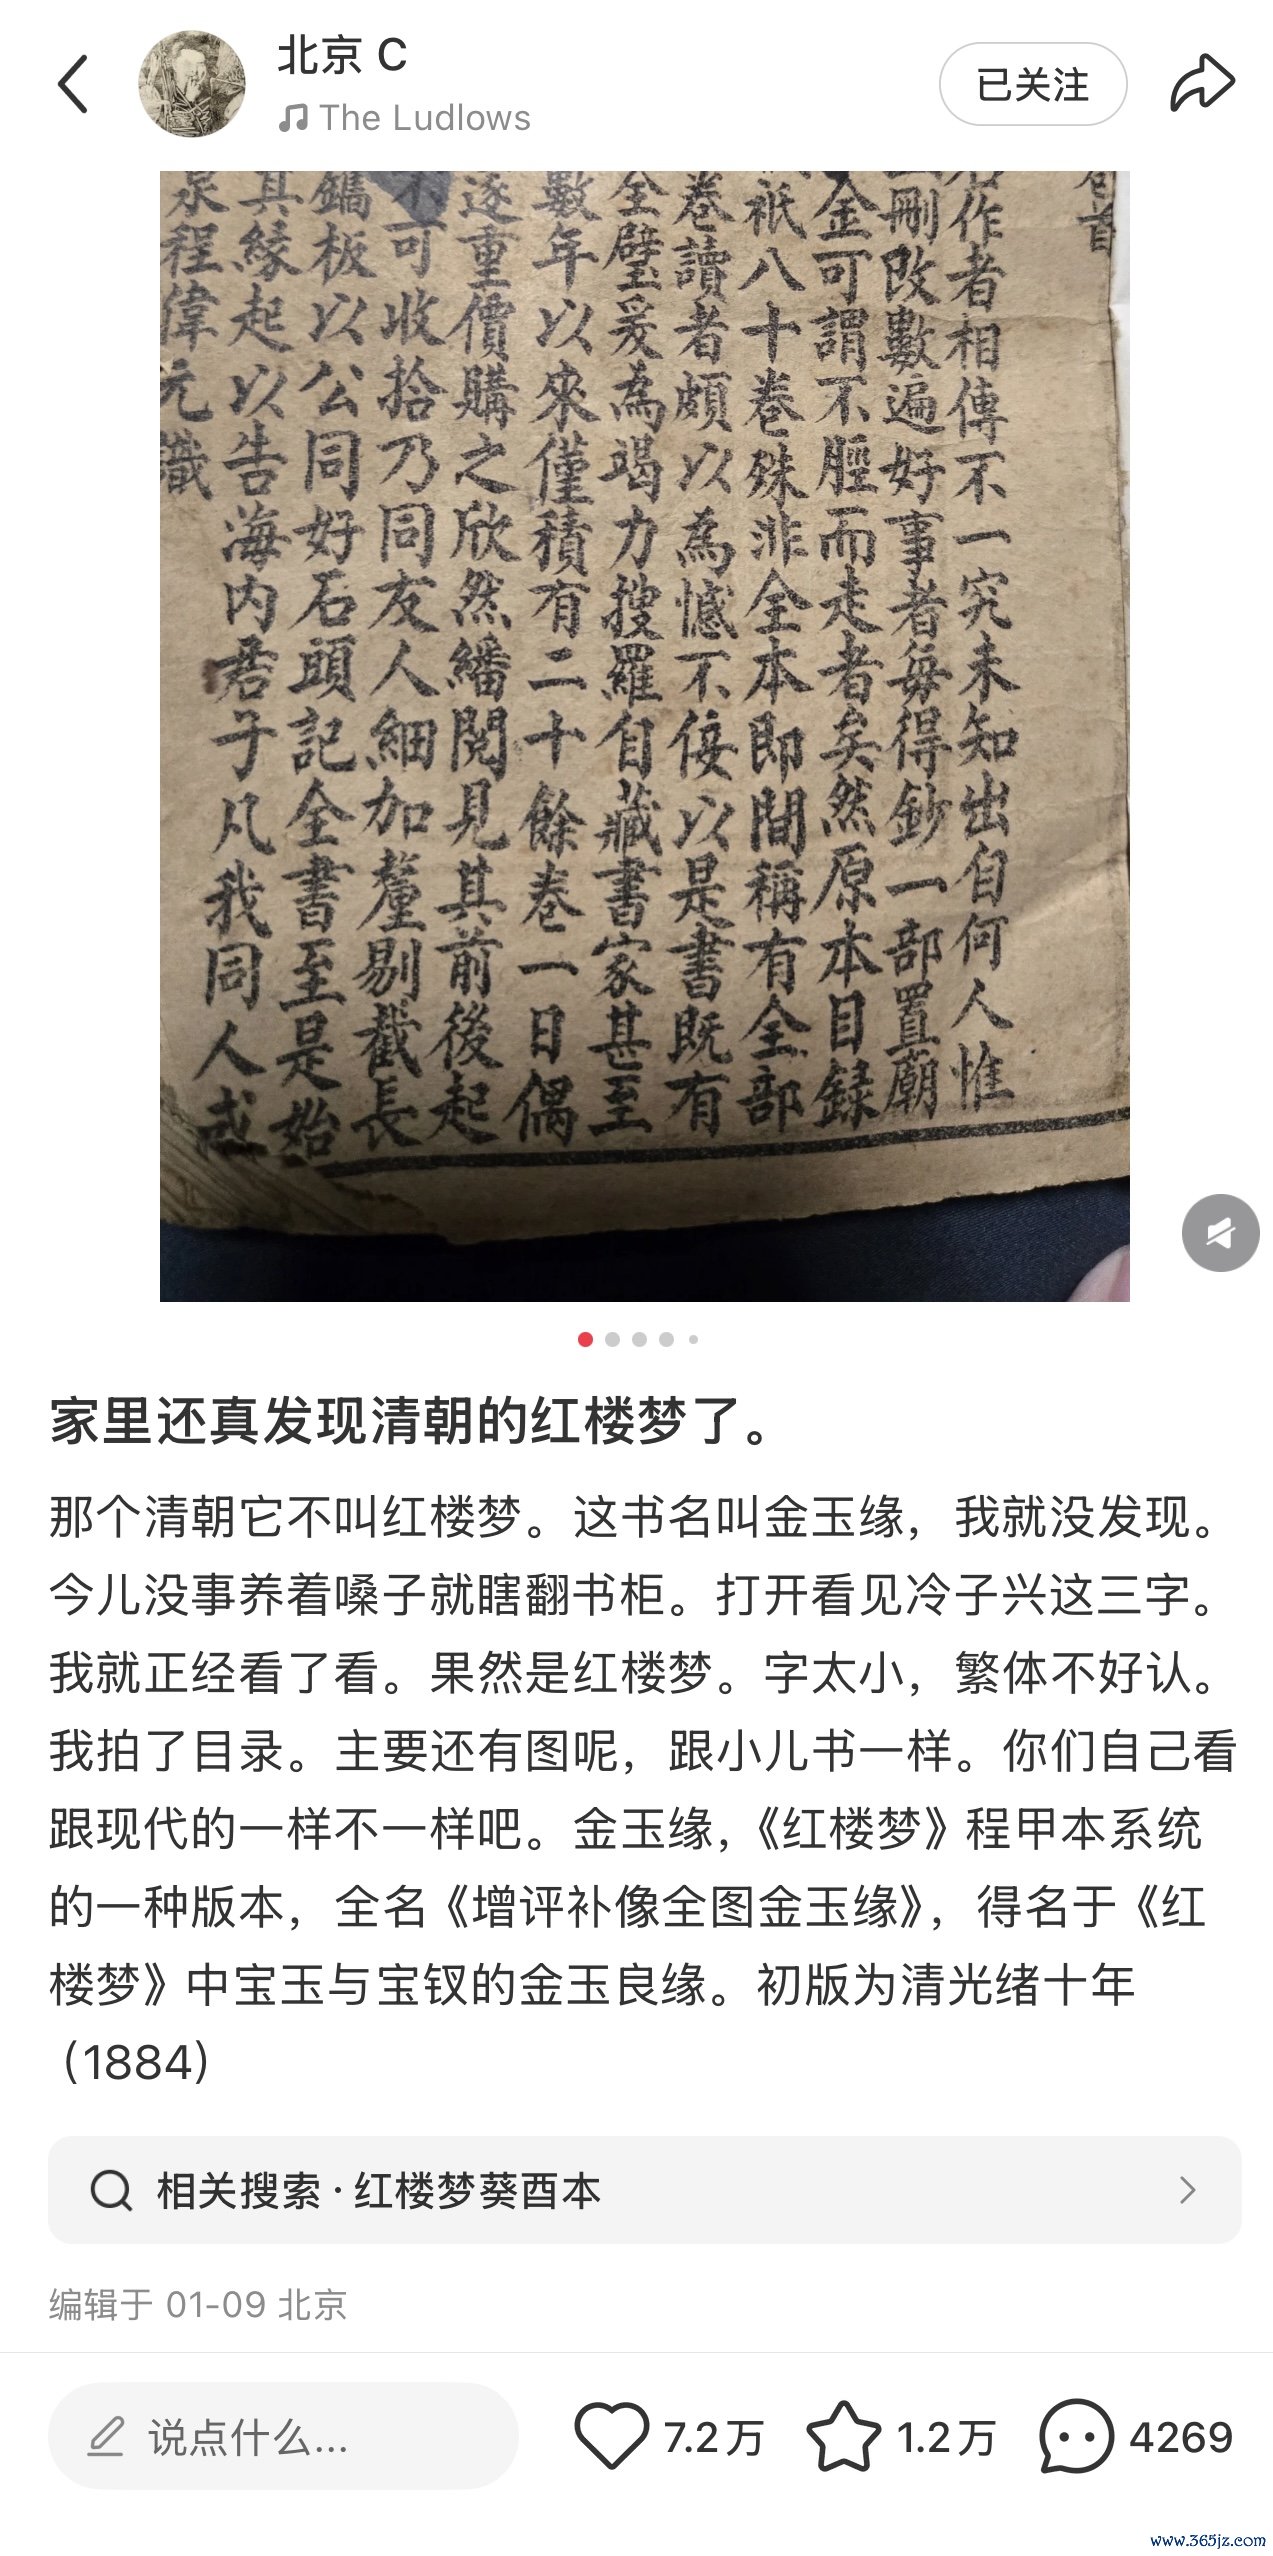 北京 C
The Ludlows
已关注
首
作者相傳不一究未知出自何人惟
刪改數遍好事者每得鈔一部置廟
金可謂不脛而走者矣然原本目録
祇八十卷殊非全本即間稱有全部
卷讀者頗以為憾不佞以是書既有
全璧爰為竭力搜羅自藏書家甚至
數年以來僅積有二十餘卷一日偶
遂重價購之欣然繙閱見其前後起
不可收拾乃同友人細加釐剔截長
鐫板以公同好石頭記全書至是始
其緣起以告海内君子凡我同人或
泉程偉元識
家里还真发现清朝的红楼梦了。
那个清朝它不叫红楼梦。这书名叫金玉缘，我就没发现。
今儿没事养着嗓子就瞎翻书柜。打开看见冷子兴这三字。
我就正经看了看。果然是红楼梦。字太小，繁体不好认。
我拍了目录。主要还有图呢，跟小儿书一样。你们自己看
跟现代的一样不一样吧。金玉缘，《红楼梦》程甲本系统
的一种版本，全名《增评补像全图金玉缘》，得名于《红
楼梦》中宝玉与宝钗的金玉良缘。初版为清光绪十年
（1884）
相关搜索 · 红楼梦葵酉本
编辑于 01-09 北京
说点什么...
7.2万
1.2万
4269
www.365jz.com